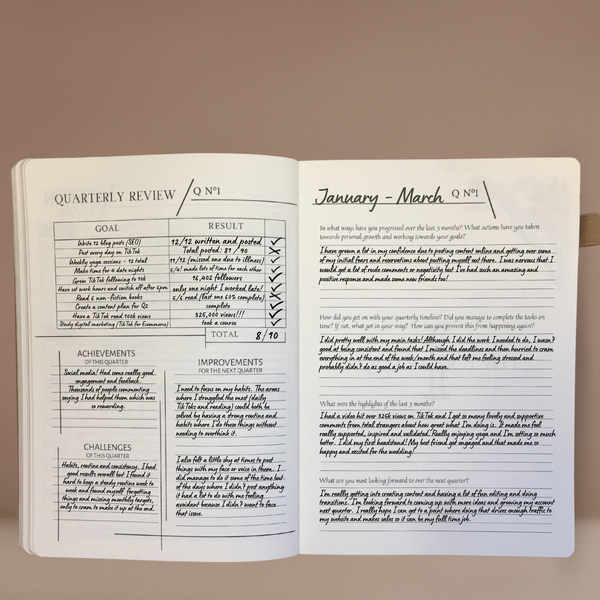 QUARTERLY REVIEW
Q Nº1
GOAL RESULT
Write 12 blog posts (SEO) 12/12 written and posted ✓
Post every day on TikTok Total posted: 81 / 90 ✗
Weekly yoga sessions - 12 total 11/12 (missed one due to illness) ✓
Make time for 4 date nights made lots of time for each other ✓
Grow TikTok following to 10k 16,402 followers ✓
Have set work hours and switch off after 6pm only one night I worked late! ✓
Read 6 non-fiction books 5/6 read (last one 60% complete) ✗
Create a content plan for Q2 complete ✓
Have a TikTok reach 100k views 325,000 views!!! ✓
Study digital marketing (TikTok for Ecommerce) took a course ✓
TOTAL 8/10
ACHIEVEMENTS
OF THIS QUARTER
Social media! Had some really good
engagement and feedback.
Thousands of people commenting
saying I had helped them which was
so rewarding.
CHALLENGES
OF THIS QUARTER
Habits, routine and consistency. I had
good results overall but I found it
hard to keep a steady routine week to
week and found myself forgetting
things and missing monthly targets,
only to cram to make it up at the end.
IMPROVEMENTS
FOR THE NEXT QUARTER
I need to focus on my habits. The areas
where I struggled the most (daily
TikToks and reading) could both be
solved by having a strong routine and
habits where I do these things without
needing to overthink it.
I also felt a little shy at times to post
things with my face or voice in them. I
did manage to do it some of the time but
of the days where I didn't post anything
it had a lot to do with me feeling
avoidant because I didn't want to face
that issue.
January - March Q Nº1
In what ways have you progressed over the last 3 months? What actions have you taken
towards personal growth and working towards your goals?
I have grown a lot in my confidence due to posting content online and getting over some
of my initial fears and reservations about putting myself out there. I was nervous that I
would get a lot of rude comments or negativity but I've had such an amazing and
positive response and made some new friends too!
How did you get on with your quarterly timeline? Did you manage to complete the tasks on
time? If not, what got in your way? How can you prevent this from happening again?
I did pretty well with my main tasks! Although I did the work I needed to do, I wasn't
good at being consistent and found that I missed the deadlines and then hurried to cram
everything in at the end of the week/month and that left me feeling stressed and
probably didn't do as good a job as I could have.
What were the highlights of the last 3 months?
I had a video hit over 325k views on TikTok and I got so many lovely and supportive
comments from total strangers about how great what I'm doing is. It made me feel
really supported, inspired and validated. Really enjoying yoga and I'm getting so much
better. I did my first headstand! My best friend got engaged and that made me so
happy and excited for the wedding!
What are you most looking forward to over the next quarter?
I'm really getting into creating content and having a lot of fun editing and doing
transitions. I'm looking forward to coming up with more ideas and growing my account
next quarter. I really hope I can get to a point where doing that drives enough traffic to
my website and makes sales so it can be my full time job.